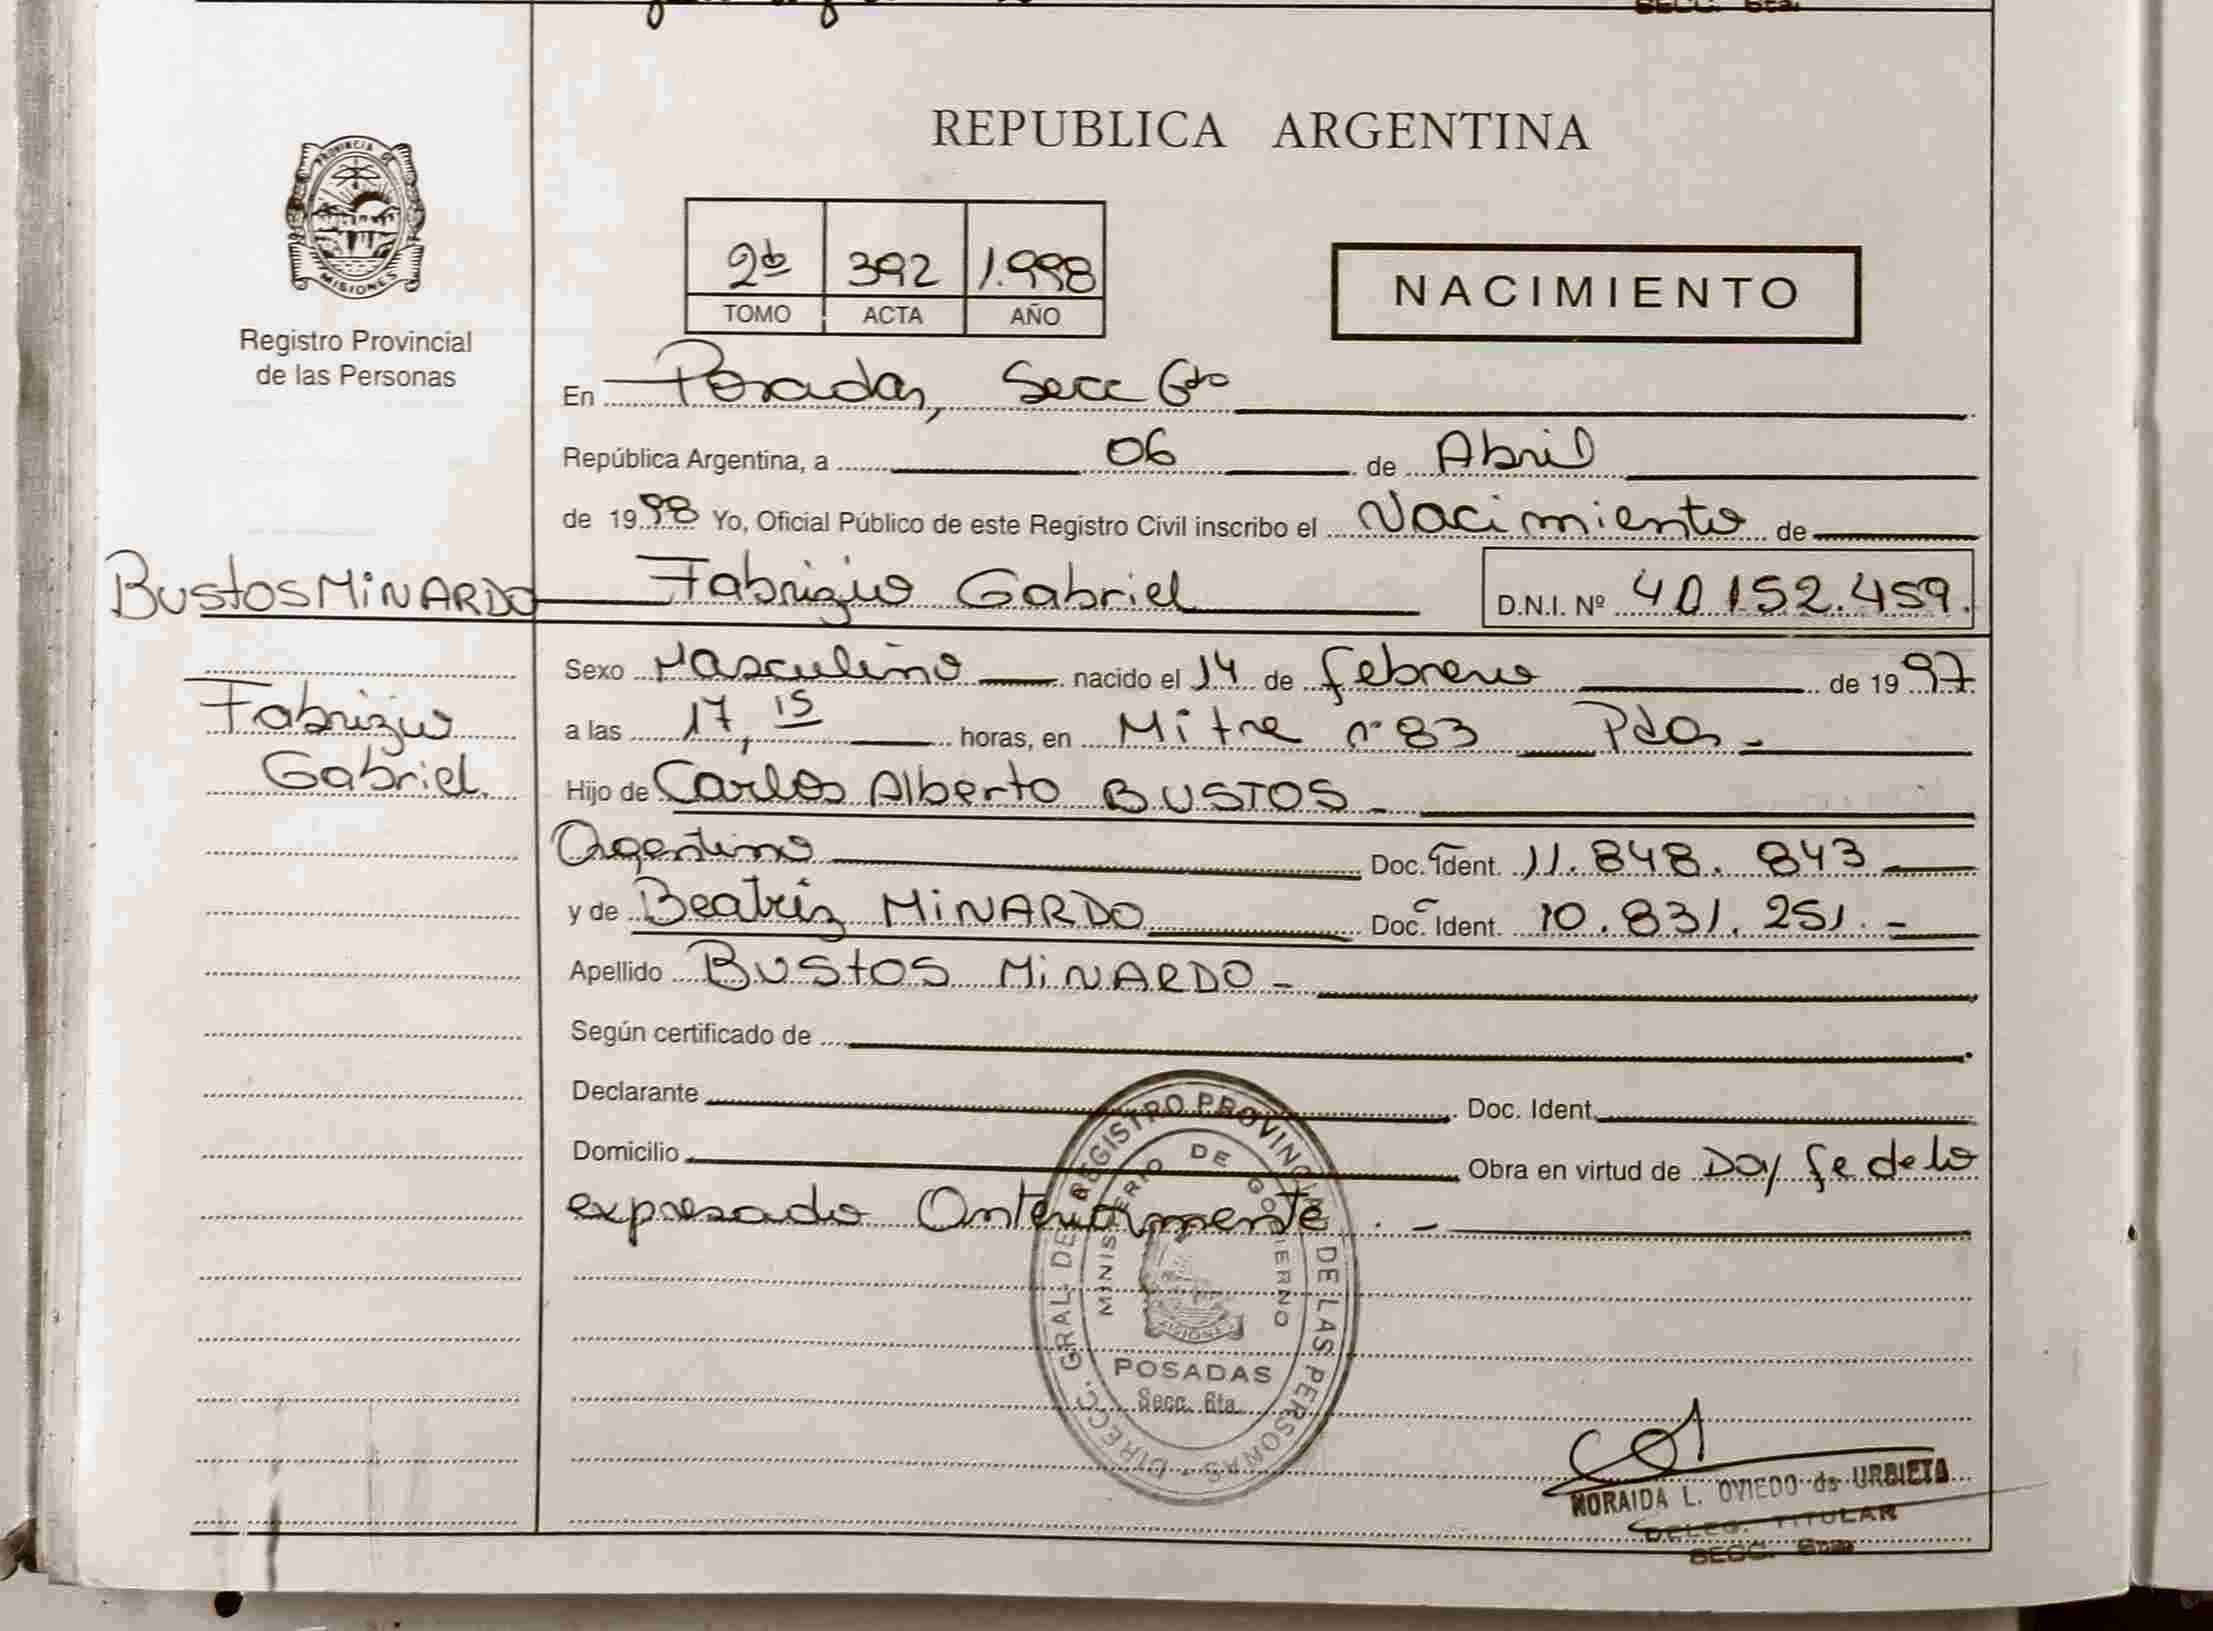 SECC. 6ta.
REPUBLICA ARGENTINA
PROVINCIA DE
MISIONES
Registro Provincial
de las Personas
2do 392 1.998
TOMO ACTA AÑO
NACIMIENTO
En Posadas, Secc 6ta
República Argentina, a 06 de Abril
de 1998 Yo, Oficial Público de este Registro Civil inscribo el Nacimiento de
BUSTOS MINARDO Fabrizio Gabriel D.N.I. Nº 40152.459.
Sexo Masculino nacido el 14 de febrero de 1997
Fabrizio
a las 17,15 horas, en Mitre nº 83 Pdas -
Gabriel.
Hijo de Carlos Alberto BUSTOS -
Argentino Doc. Ident. 11.848.843 -
y de Beatriz MINARDO Doc. Ident. 10.831.251. -
Apellido BUSTOS MINARDO -
Según certificado de
Declarante Doc. Ident.
Domicilio Obra en virtud de Doy fe de lo
expresado Anteriormente . -
DIRECC. GRAL. DEL REGISTRO PROVINCIAL DE LAS PERSONAS
MINISTERIO DE GOBIERNO
MISIONES
POSADAS
Secc. 6ta.
NORAIDA L. OVIEDO de URBIETA
DELEG. TITULAR
SECC. 6ta.